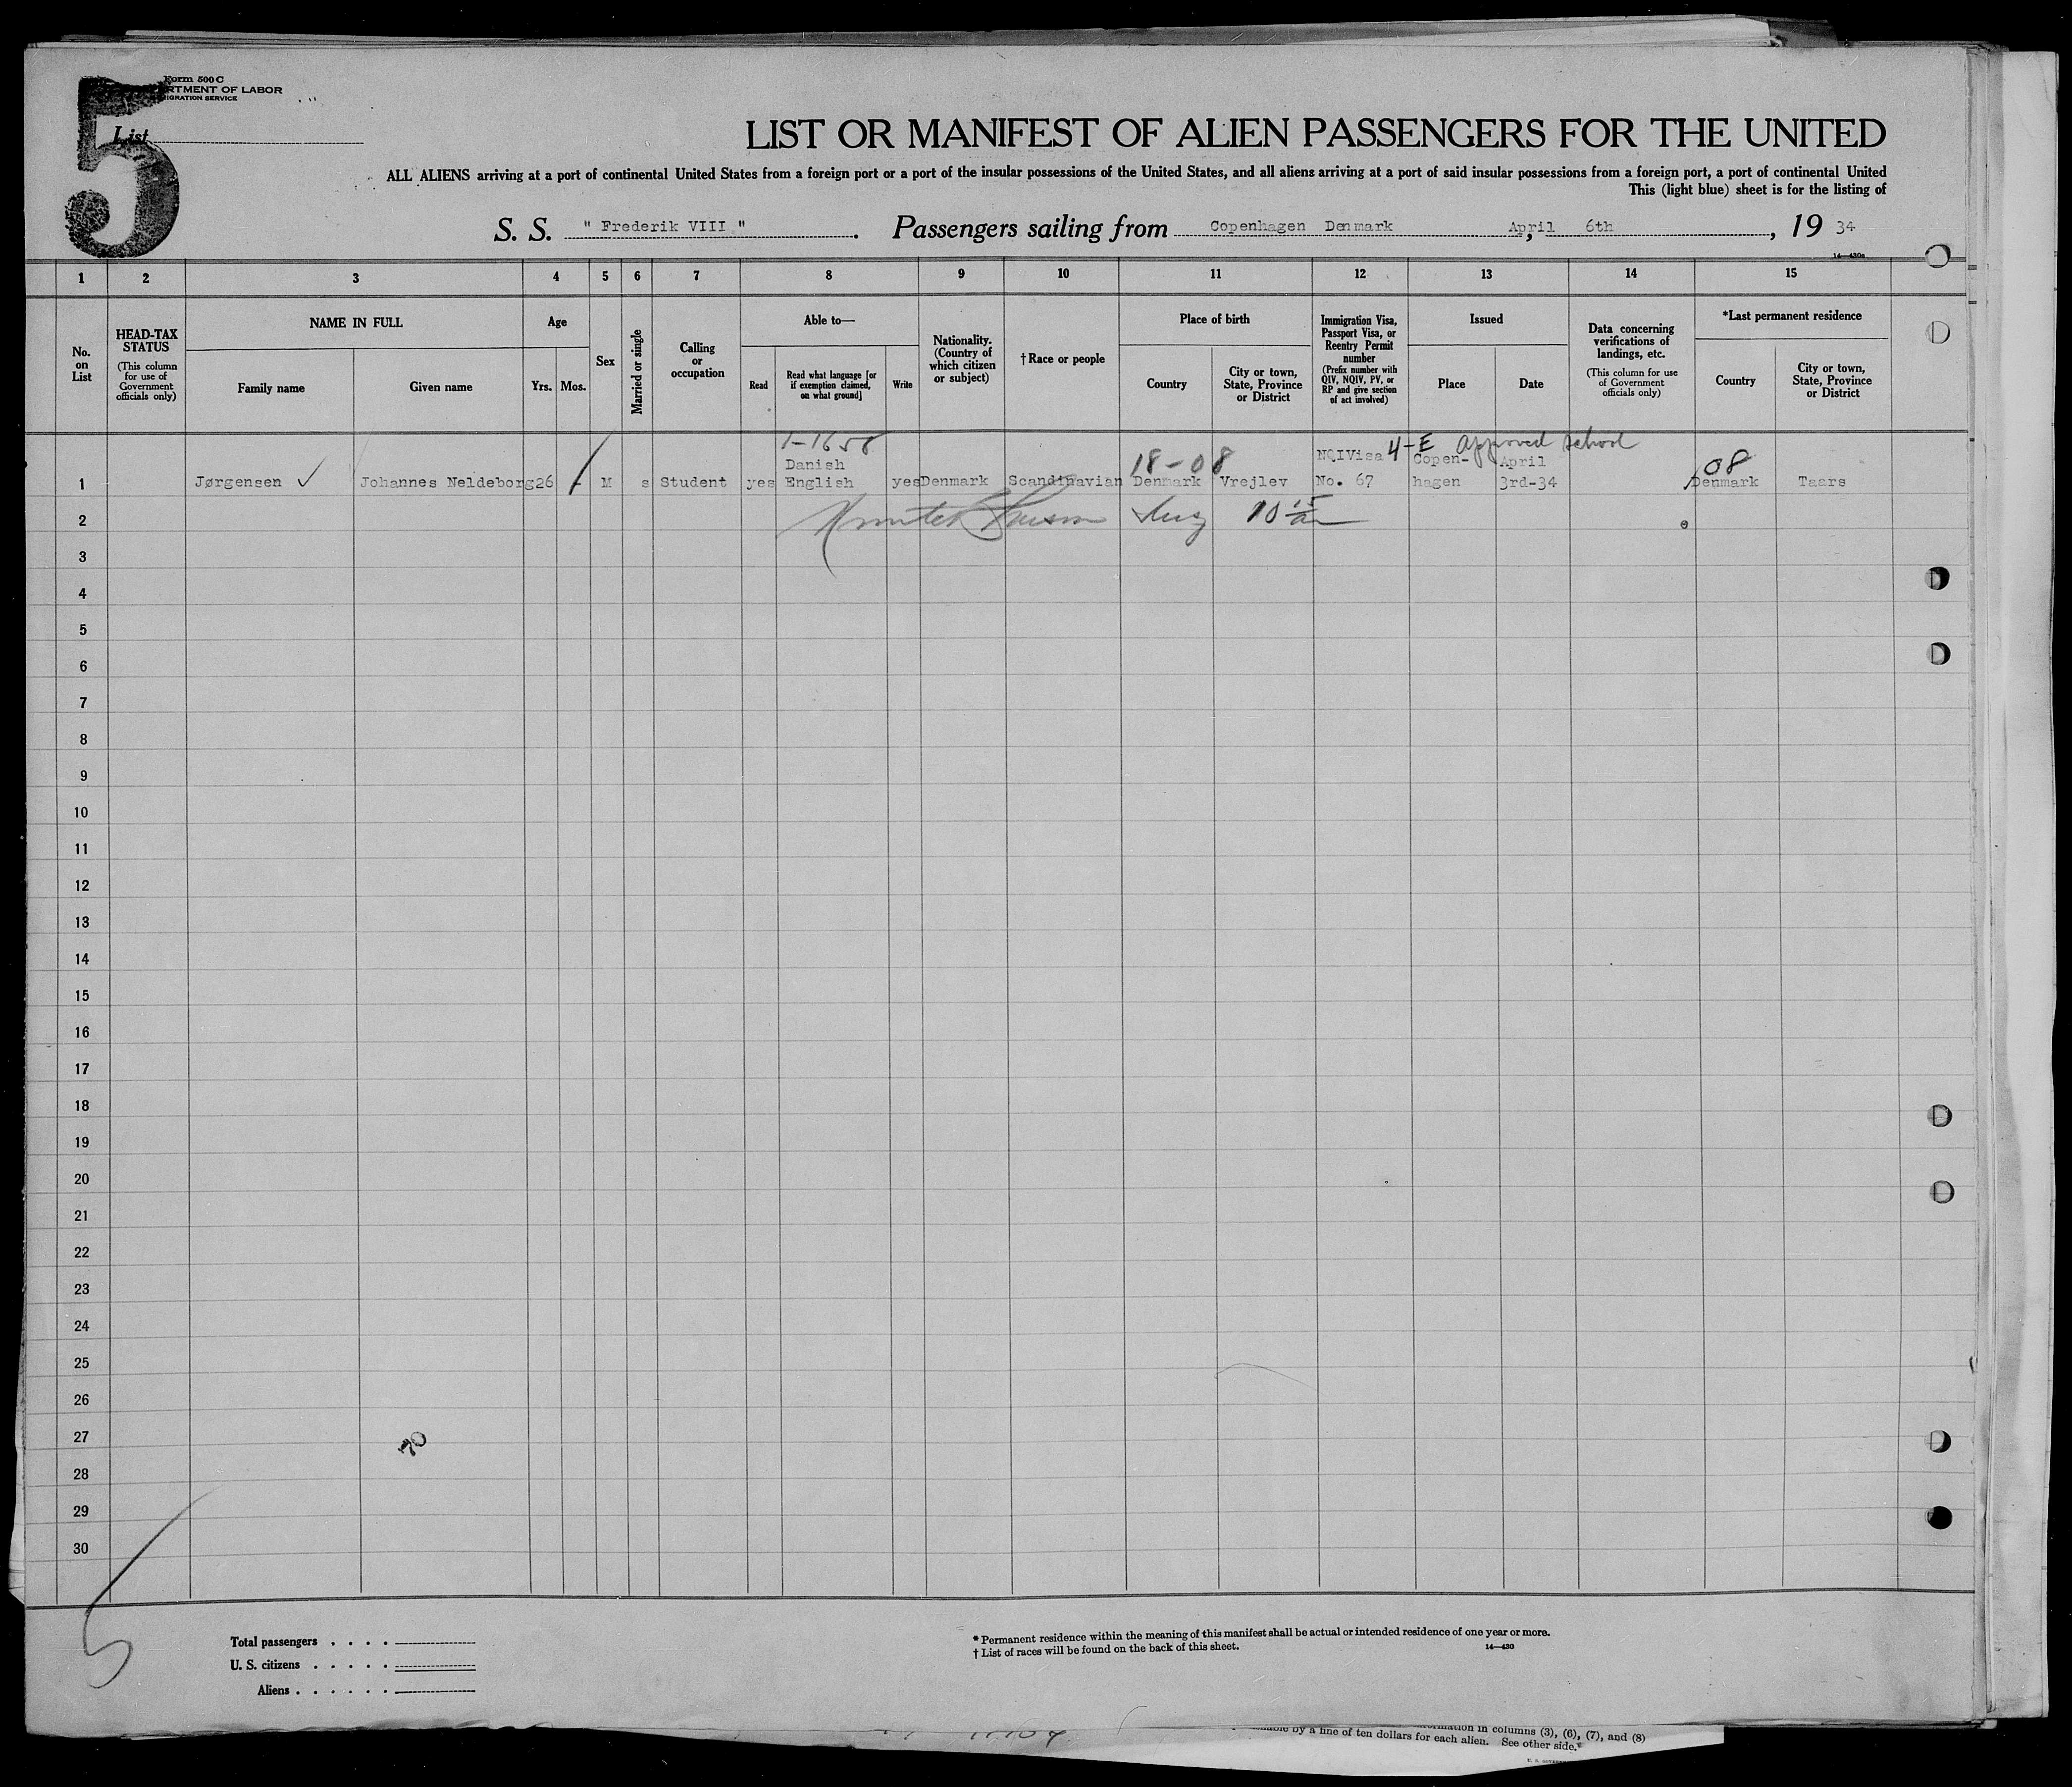 Form 500 C
RTMENT OF LABOR
IGRATION SERVICE
5
List
LIST OR MANIFEST OF ALIEN PASSENGERS FOR THE UNITED
ALL ALIENS arriving at a port of continental United States from a foreign port or a port of the insular possessions of the United States, and all aliens arriving at a port of said insular possessions from a foreign port, a port of continental United
This (light blue) sheet is for the listing of
S. S. " Frederik VIII ". Passengers sailing from Copenhagen Denmark April 6th, 19 34
14—430a
1 2 3 4 5 6 7 8 9 10 11 12 13 14 15
No. on List
HEAD-TAX STATUS
(This column for use of Government officials only)
NAME IN FULL
Family name
Given name
Age
Yrs.
Mos.
Sex
Married or single
Calling or occupation
Able to—
Read
Read what language [or if exemption claimed, on what ground]
Write
Nationality. (Country of which citizen or subject)
†Race or people
Place of birth
Country
City or town, State, Province or District
Immigration Visa, Passport Visa, or Reentry Permit number
(Prefix number with QIV, NQIV, PV, or RP and give section of act involved)
Issued
Place
Date
Data concerning verifications of landings, etc.
(This column for use of Government officials only)
*Last permanent residence
Country
City or town, State, Province or District
1-1658
4-E approved school
Danish 18-08 NQIVisa Copen- April 08
1 Jørgensen ✓ Johannes Neldeborg 26 - M s Student yes English yes Denmark Scandinavian Denmark Vrejlev No. 67 hagen 3rd-34 Denmark Taars
2
3
4
5
6
7
8
9
10
11
12
13
14
15
16
17
18
19
20
21
22
23
24
25
26
27
28
29
30
5
Total passengers
U. S. citizens
Aliens
* Permanent residence within the meaning of this manifest shall be actual or intended residence of one year or more.
† List of races will be found on the back of this sheet.
14—430
in columns (3), (6), (7), and (8)
by a fine of ten dollars for each alien. See other side.